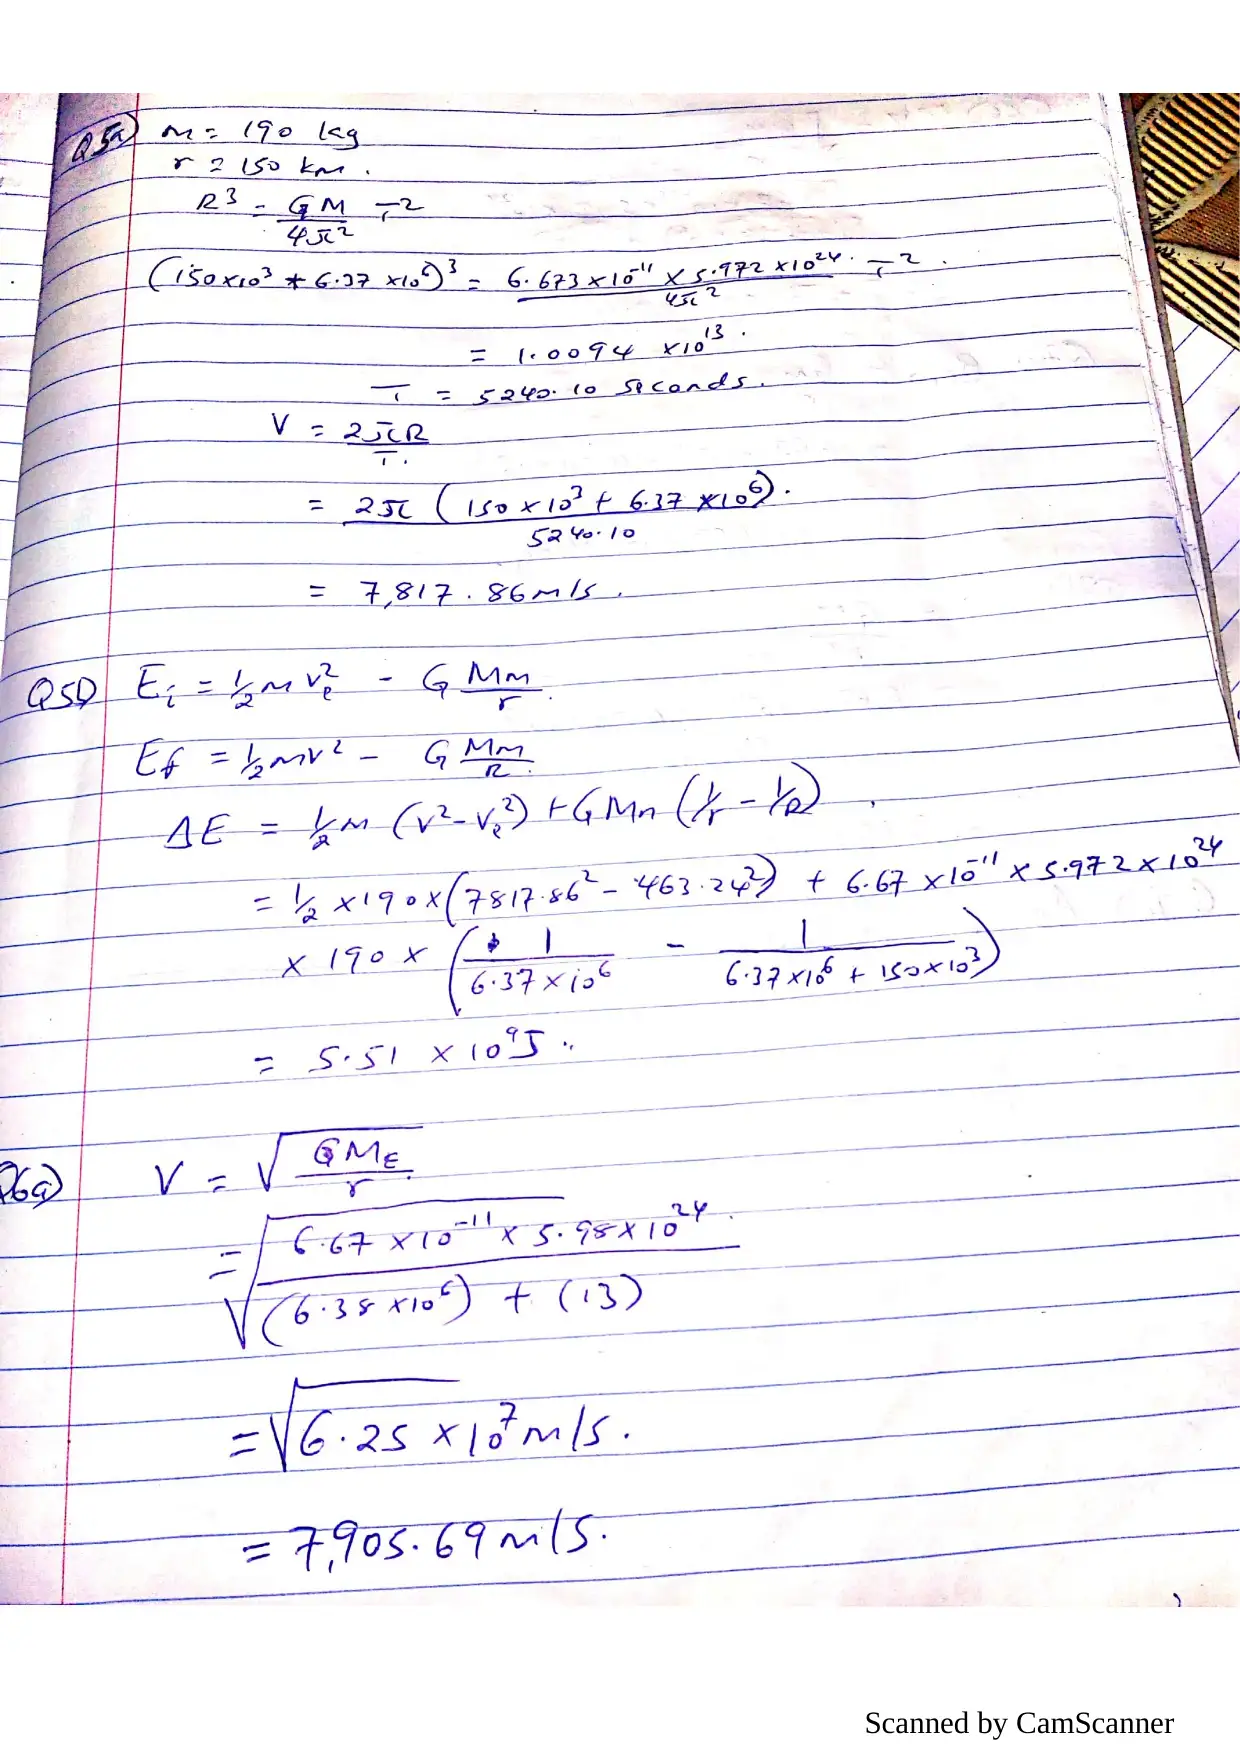 Q5a) m = 190 kg
r = 150 km.
R³ = GM/4π² T²
(150x10³ + 6.37 x10⁶)³ = 6.673 x 10⁻¹¹ x 5.972 x10²⁴/4π² . T² .
= 1.0094 x10¹³ .
T = 5240.10 seconds.
V = 2πR/T.
= 2π (150 x 10³ + 6.37 x10⁶)/5240.10 .
= 7,817.86m/s.
Q5D Ei = ½ m ve² - G Mm/r.
Ef = ½mv² - G Mm/R.
ΔE = ½m (v² - ve²) + GMm (1/r - 1/R) .
= ½ x190x(7817.86² - 463.24²) + 6.67 x10⁻¹¹ x 5.972x10²⁴
x 190 x (1/6.37x10⁶ - 1/6.37x10⁶ + 150x10³)
= 5.51 x 10⁹J .
Q6a) V = √GME/r.
= √6.67 x10⁻¹¹ x 5.98x10²⁴/(6.38 x10⁶) + (13)
= √6.25 x10⁷ m/s.
= 7,905.69 m/s.
Scanned by CamScanner